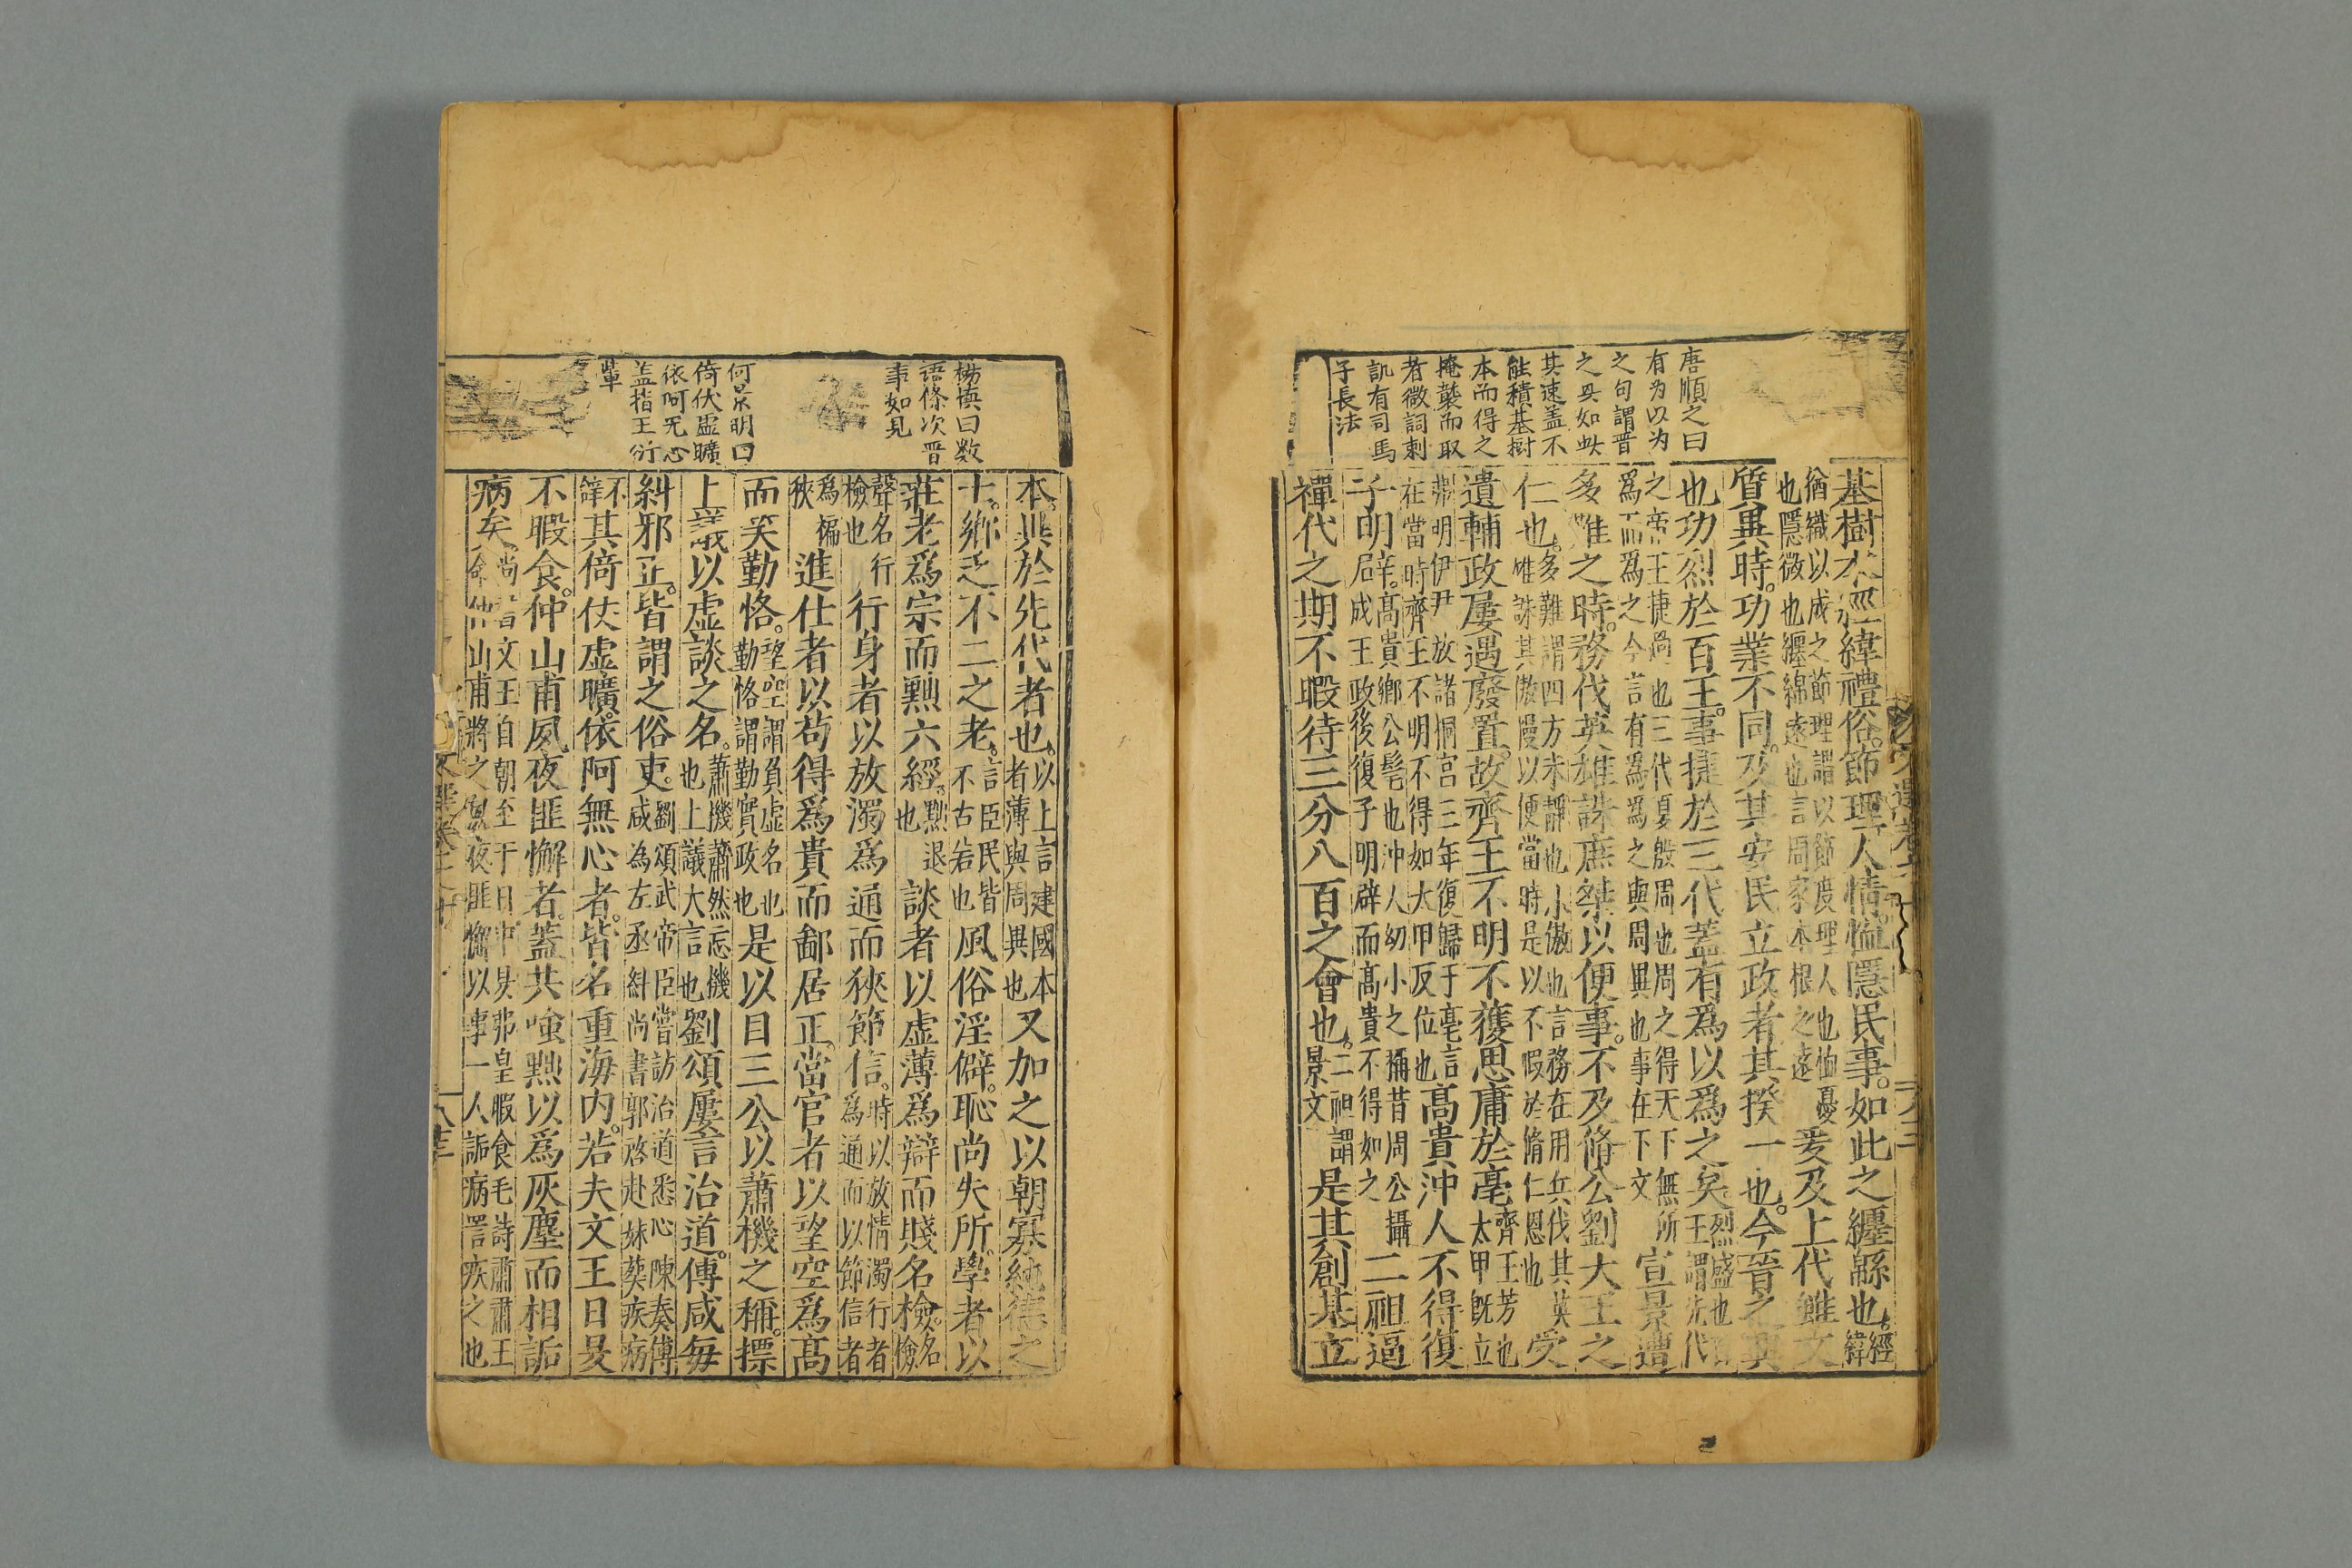 唐順之曰
有为以为
之句謂晋
之異如此
其速盖不
能積基樹
本而得之
掩襲而取
者微詞刺
訊有司馬
子長法
基樹本經緯禮俗。節理人情。恤隱民事。如此之纏緜也。經緯
猶織以成之節理謂以節度理人也恤憂
也隱微也纏綿遠也言周家本根之遠
爰及上代雖文
質異時。功業不同。及其安民立政者其揆一也。今晉之興
也功烈於百王。事捷於三代蓋有爲以爲之矣。烈盛也百王謂先代
之帝王捷過也三代夏殷周也周之得天下無所
爲而爲之今言有爲爲之與周異也事在下文
宣景遭
多難之時。務伐英雄誅庶桀以便事。不及脩公劉大王之
仁也。多難謂四方未靜也小傲也言務在用兵伐其英
雄誅其傲慢以便當時是以不暇於脩仁恩也
受
遺輔政屢遇廢置。故齊王不明不獲思庸於亳齊王芳也太甲旣立
弗明伊尹放諸桐宮三年復歸于亳言
在當時齊王不明不得如太甲反位也
高貴沖人不得復
子明辟。高貴鄉公髦也沖人幼小之稱昔周公攝
居成王政後復子明辟而高貴不得如之
二祖逼
禪代之期不暇待三分八百之會也。二祖謂景文
是其創基立
楊慎曰数
語條次晋
事如見
何景明曰
倚伏虛曠
依阿无心
盖指王衍
輩
本。異於先代者也。以上言建國本者薄與周異也
又加之以朝寡純德之
士。鄉乏不二之老。言臣民皆不古若也
風俗淫僻。恥尚失所。學者以
莊老爲宗而黜六經。黜退也
談者以虛薄爲辯而賤名檢。名儉
聲名行檢也
行身者以放濁爲通而狹節信。時以放情濁行者爲通而以節信者
爲褊狹
進仕者以苟得爲貴而鄙居正。當官者以望空爲高
而笑勤恪。望空謂負虛名也勤恪謂勤實政也
是以目三公以蕭機之稱。摽
上議以虛談之名。蕭機蕭然忘機也上議大言也
劉頌屢言治道。傅咸每
糾邪正。皆謂之俗吏。劉頌武帝臣嘗訪治道悉心陳奏傅咸為左丞糾尚書郭啓赴妹葬疾病
不辭
其倚仗虛曠。依阿無心者。皆名重海內。若夫文王日昃
不暇食。仲山甫夙夜匪懈者。蓋共嗤黜以爲灰塵而相詬
病矣。尚書文王自朝至于日中昃弗皇暇食毛詩肅肅王
命仲山甫將之夙夜匪懈以事一人詬病詈疾之也